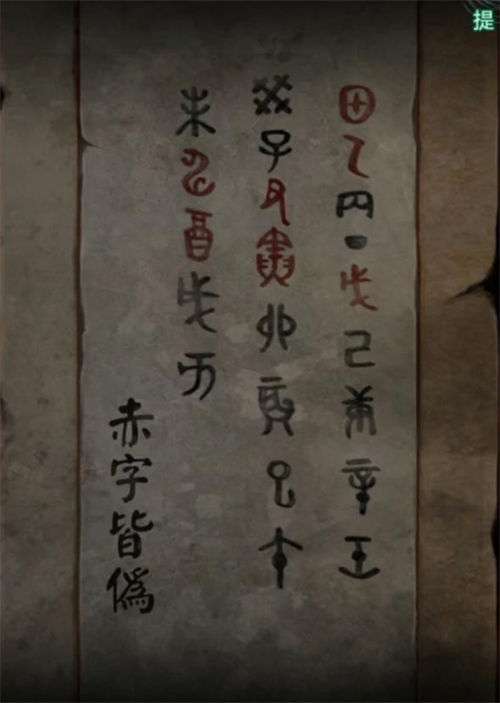 提
甲乙丙丁戊己庚辛壬
癸子丑寅卯辰巳午
未申酉戌亥
赤字皆偽